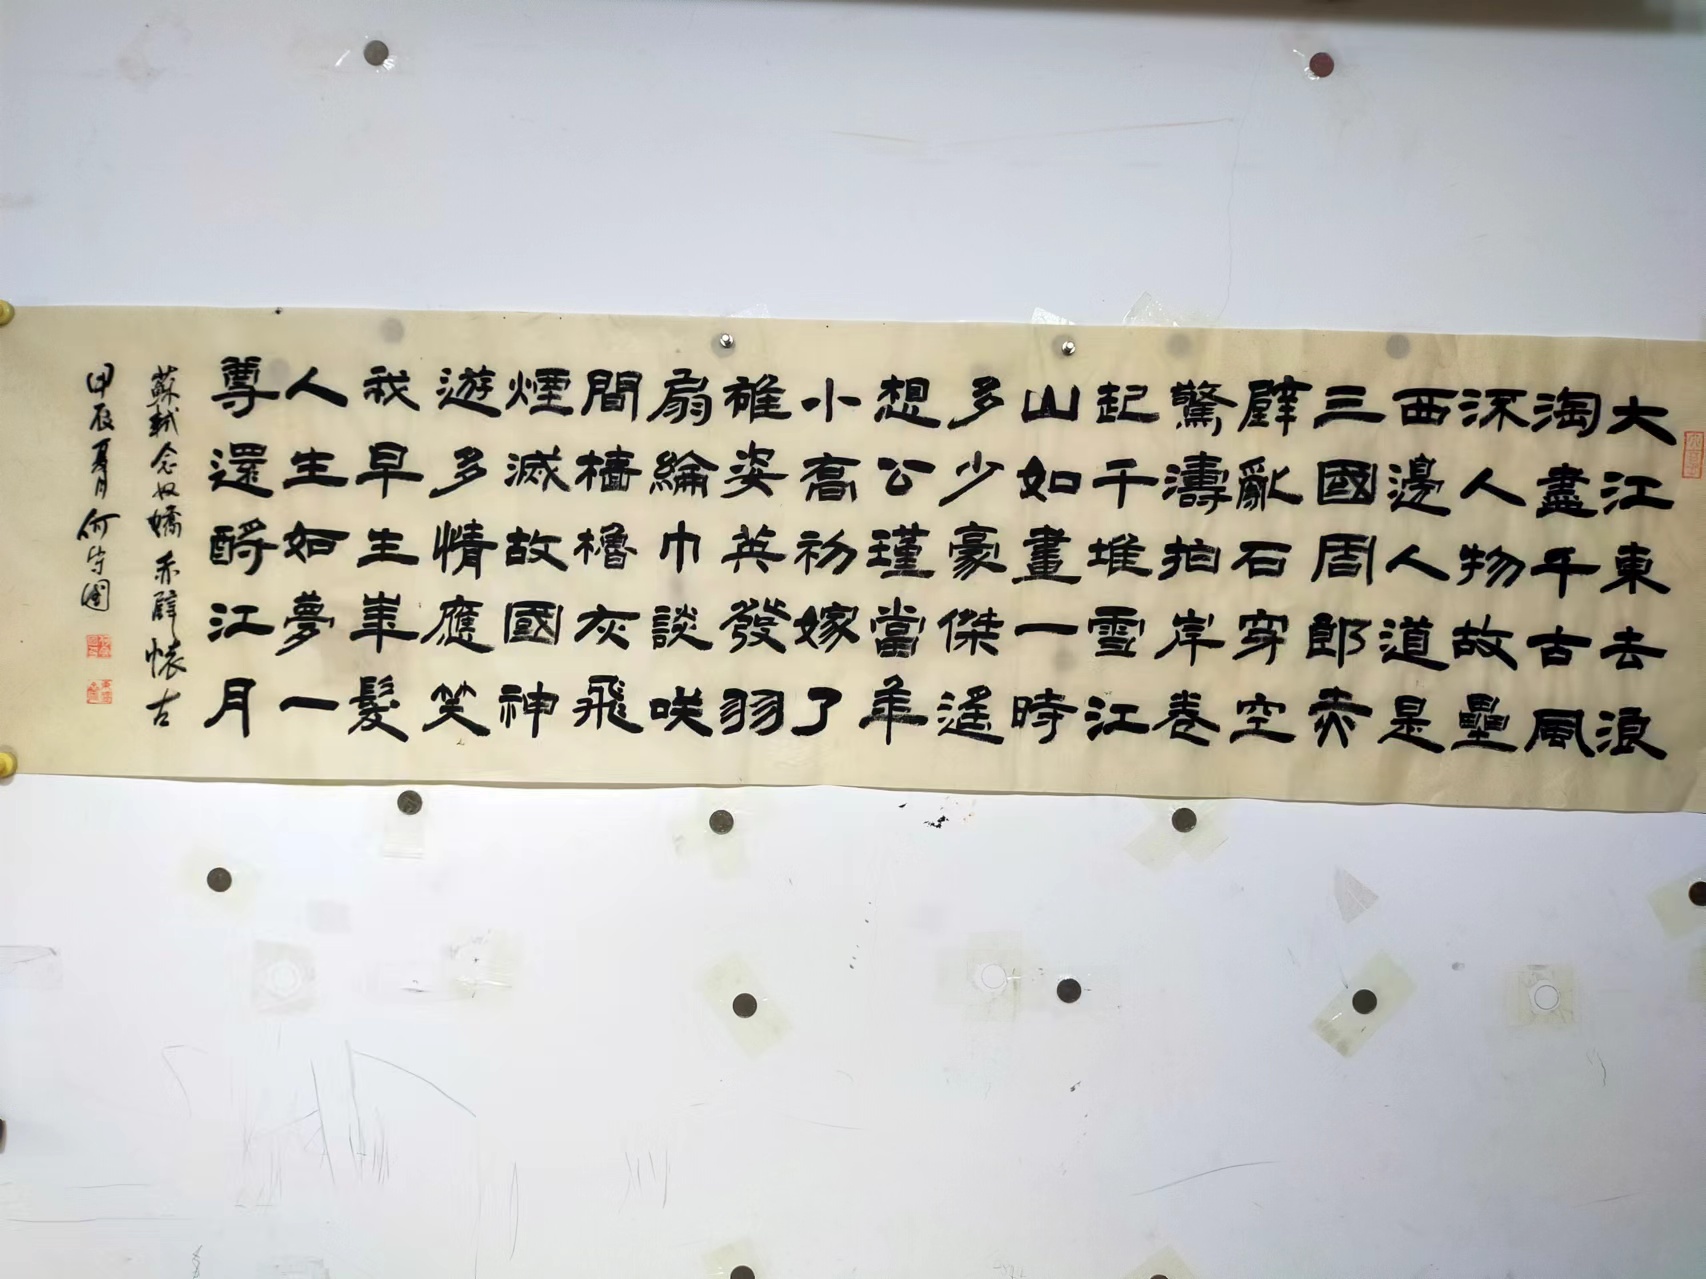 大江東去浪
淘盡千古風
流人物故壘
西邊人道是
三國周郎赤
壁亂石穿空
驚濤拍岸卷
起千堆雪江
山如畫一時
多少豪傑遙
想公瑾當年
小喬初嫁了
雄姿英發羽
扇綸巾談咲
間檣櫓灰飛
煙滅故國神
遊多情應笑
我早生華髮
人生如夢一
尊還酹江月
蘇軾念奴嬌赤壁懷古
甲辰夏月何守國